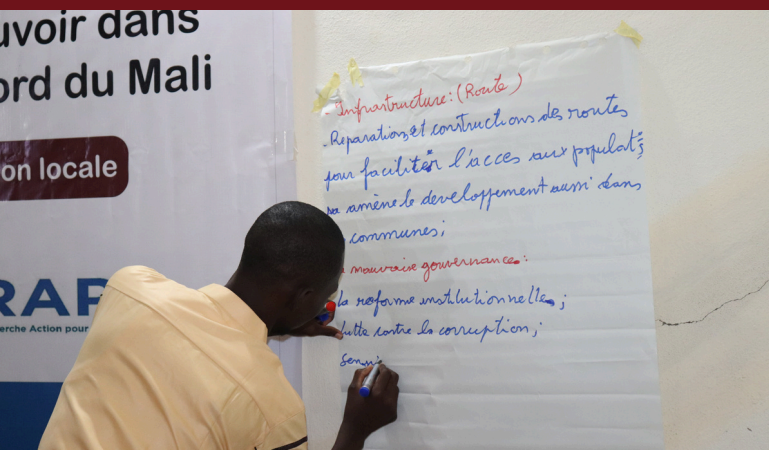 uvoir dans
ord du Mali
on locale
RAP
erche Action pour
- Infrastructure: (Route)
- Reparations et constructions des routes
pour faciliter l'acces aux populat°s
ça amène le developpement aussi dans
communes;
mauvaise gouvernance:
la reforme institutionnelle;
lutte contre la corruption;